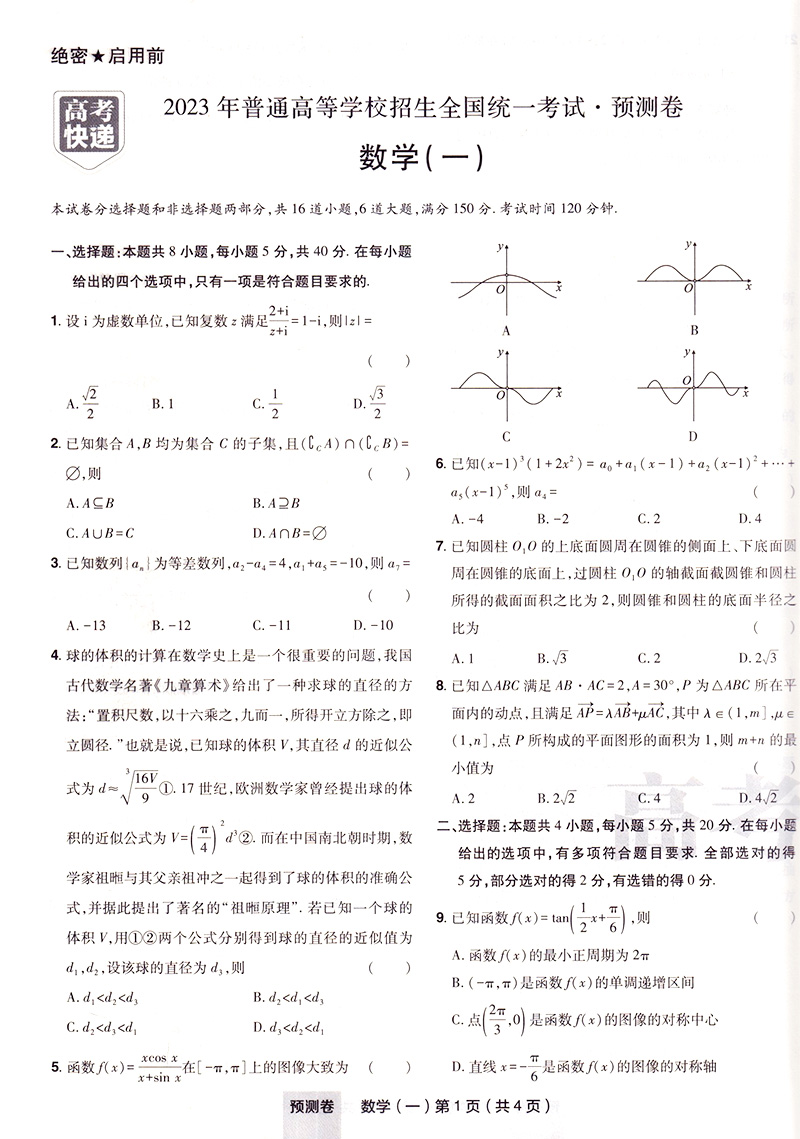 绝密★启用前
高考
快递
2023年普通高等学校招生全国统一考试·预测卷
数学(一)
本试卷分选择题和非选择题两部分,共16道小题,6道大题,满分150分.考试时间120分钟.
一、选择题:本题共8小题,每小题5分,共40分.在每小题
给出的四个选项中,只有一项是符合题目要求的.
1. 设i为虚数单位,已知复数z满足(2+i)/(z+i)=1-i,则|z|=
( )
A. √2/2 B. 1 C. 1/2 D. √3/2
2. 已知集合A,B均为集合C的子集,且(∁_C A)∩(∁_C B)=
∅,则 ( )
A. A⊆B B. A⊇B
C. A∪B=C D. A∩B=∅
3. 已知数列{aₙ}为等差数列,a₂-a₄=4,a₁+a₅=-10,则a₇=
( )
A. -13 B. -12 C. -11 D. -10
4. 球的体积的计算在数学史上是一个很重要的问题,我国
古代数学名著《九章算术》给出了一种求球的直径的方
法:“置积尺数,以十六乘之,九而一,所得开立方除之,即
立圆径.”也就是说,已知球的体积V,其直径d的近似公
式为d≈∛(16V/9)①. 17世纪,欧洲数学家曾经提出球的体
积的近似公式为V=(π/4)²d³②. 而在中国南北朝时期,数
学家祖暅与其父亲祖冲之一起得到了球的体积的准确公
式,并据此提出了著名的“祖暅原理”. 若已知一个球的
体积V,用①②两个公式分别得到球的直径的近似值为
d₁,d₂,设该球的直径为d₃,则 ( )
A. d₁<d₂<d₃ B. d₂<d₁<d₃
C. d₂<d₃<d₁ D. d₃<d₂<d₁
5. 函数f(x)=(xcos x)/(x+sin x)在[-π,π]上的图像大致为 ( )
y y
O x O x
A B
y y
O x O x
C D
6. 已知(x-1)³(1+2x²)=a₀+a₁(x-1)+a₂(x-1)²+…+
a₅(x-1)⁵,则a₄= ( )
A. -4 B. -2 C. 2 D. 4
7. 已知圆柱O₁O的上底面圆周在圆锥的侧面上、下底面圆
周在圆锥的底面上,过圆柱O₁O的轴截面截圆锥和圆柱
所得的截面面积之比为2,则圆锥和圆柱的底面半径之
比为 ( )
A. 1 B. √3 C. 2 D. 2√3
8. 已知△ABC满足AB·AC=2,A=30°,P为△ABC所在平
面内的动点,且满足AP→=λAB→+μAC→,其中λ∈(1,m],μ∈
(1,n],点P所构成的平面图形的面积为1,则m+n的最
小值为 ( )
A. 2 B. 2√2 C. 4 D. 4√2
二、选择题:本题共4小题,每小题5分,共20分.在每小题
给出的选项中,有多项符合题目要求. 全部选对的得
5分,部分选对的得2分,有选错的得0分.
9. 已知函数f(x)=tan(1/2 x+π/6),则 ( )
A. 函数f(x)的最小正周期为2π
B. (-π,π)是函数f(x)的单调递增区间
C. 点(2π/3,0)是函数f(x)的图像的对称中心
D. 直线x=-π/6是函数f(x)的图像的对称轴
高考
预测卷 数学(一)第1页(共4页)